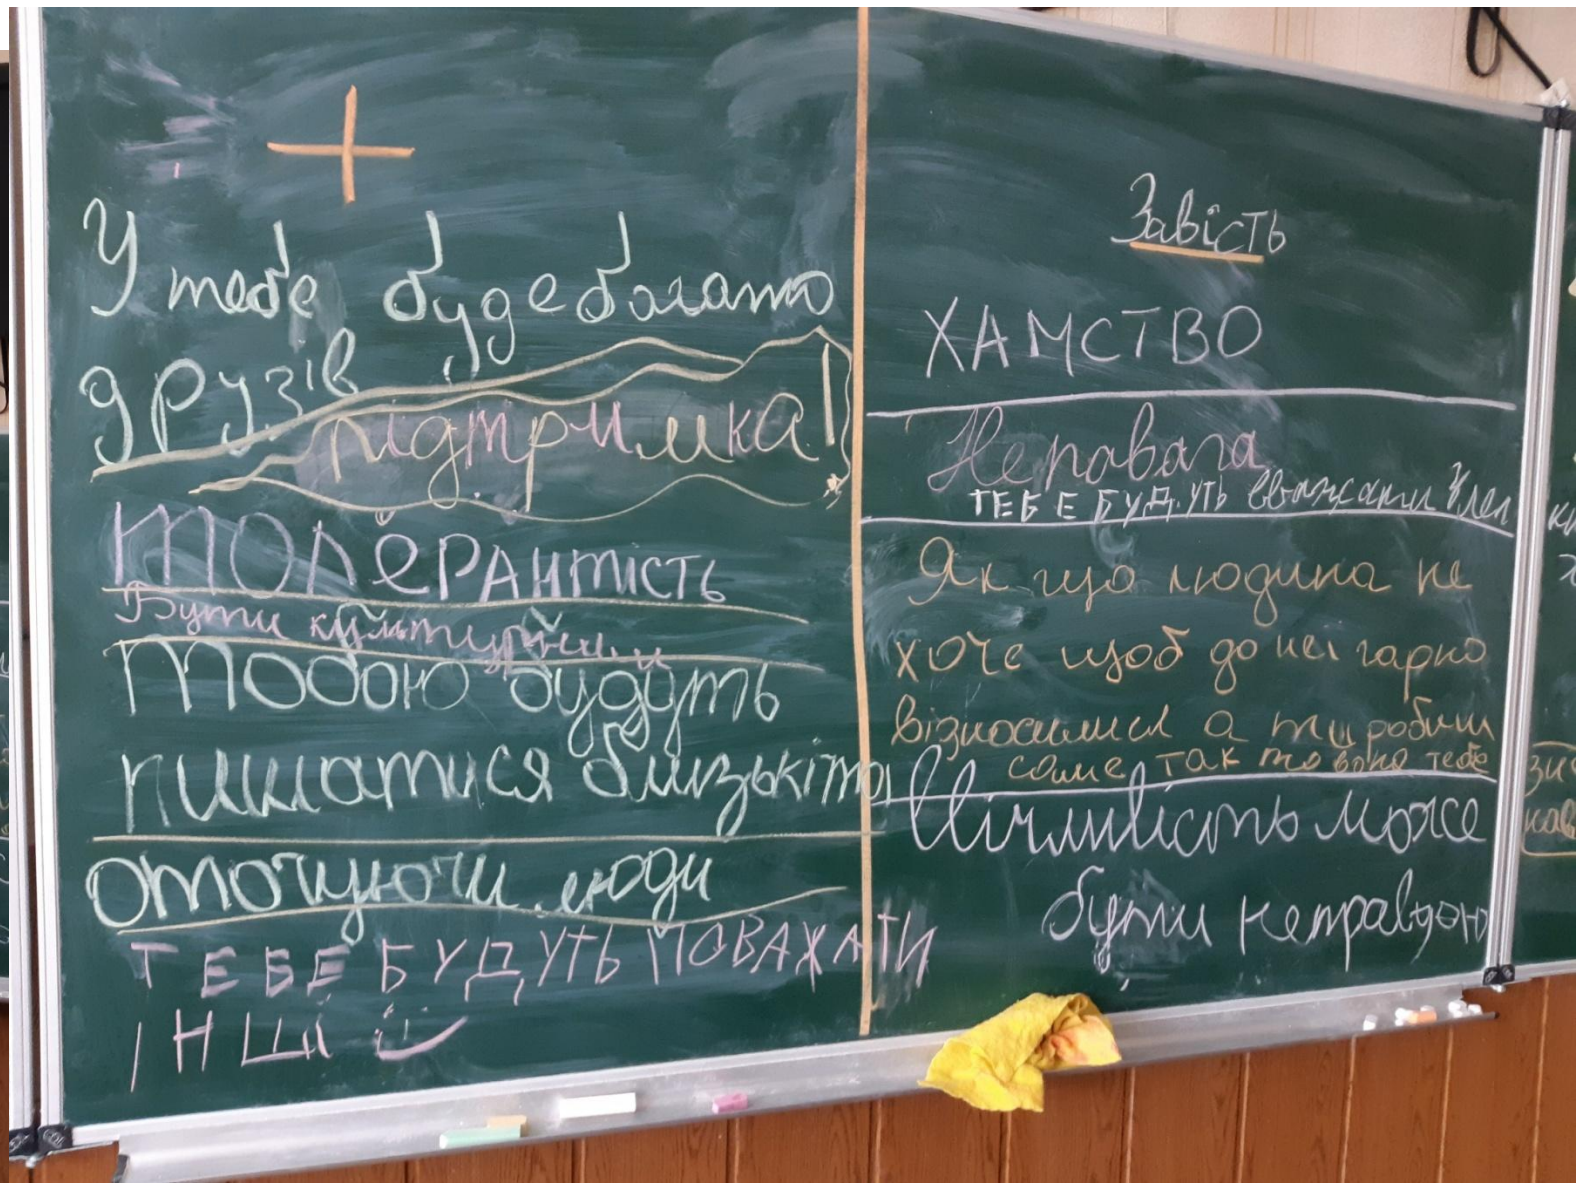 +
У тебе буде багато
друзів
підтримка!
ТОЛЕРАНТІСТЬ
Бути культурним
Тобою будуть
пишатися близькі та
оточуючи люди
ТЕБЕ БУДУТЬ ПОВАЖАТИ
ІНШІ
Завість
ХАМСТВО
Неповага
ТЕБЕ БУДУТЬ вважати
Як що людина не
хоче щоб до неї гарно
відносилися а ти робиш
саме так то вона тебе
Ввічливість може
бути неправдою